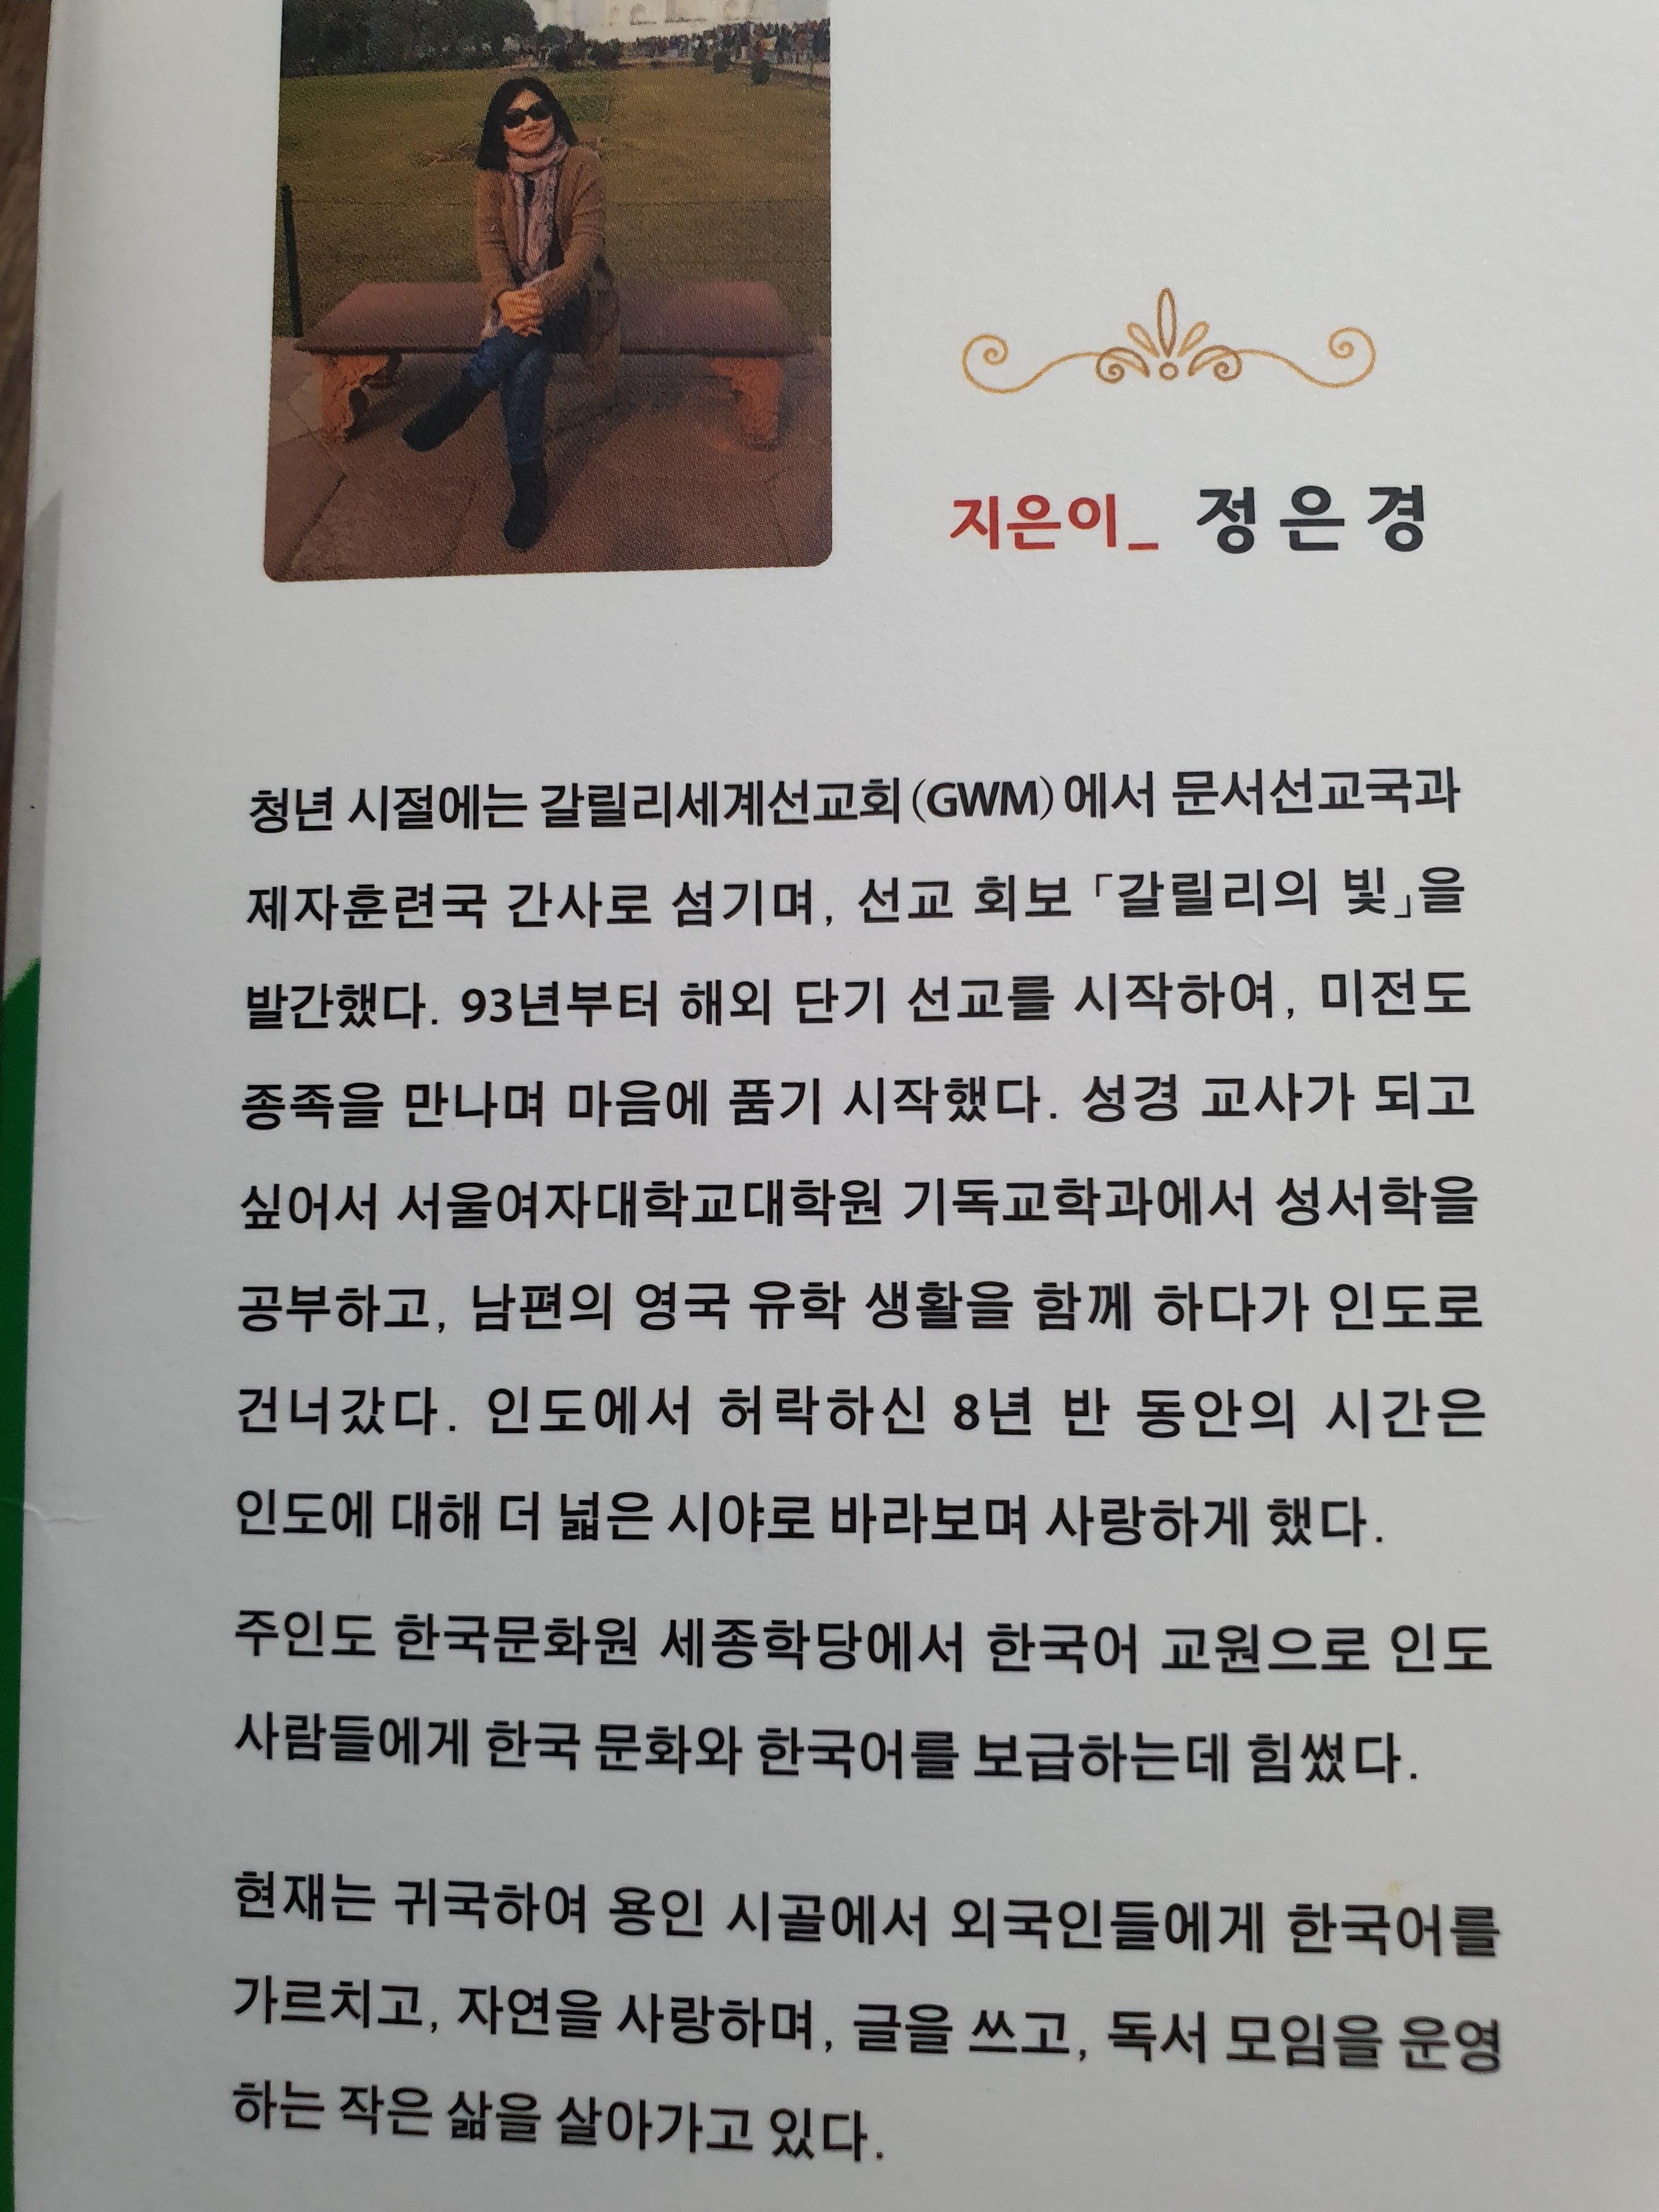 지은이_ 정은경
청년 시절에는 갈릴리세계선교회(GWM)에서 문서선교국과
제자훈련국 간사로 섬기며, 선교 회보 「갈릴리의 빛」을
발간했다. 93년부터 해외 단기 선교를 시작하여, 미전도
종족을 만나며 마음에 품기 시작했다. 성경 교사가 되고
싶어서 서울여자대학교대학원 기독교학과에서 성서학을
공부하고, 남편의 영국 유학 생활을 함께 하다가 인도로
건너갔다. 인도에서 허락하신 8년 반 동안의 시간은
인도에 대해 더 넓은 시야로 바라보며 사랑하게 했다.
주인도 한국문화원 세종학당에서 한국어 교원으로 인도
사람들에게 한국 문화와 한국어를 보급하는데 힘썼다.
현재는 귀국하여 용인 시골에서 외국인들에게 한국어를
가르치고, 자연을 사랑하며, 글을 쓰고, 독서 모임을 운영
하는 작은 삶을 살아가고 있다.